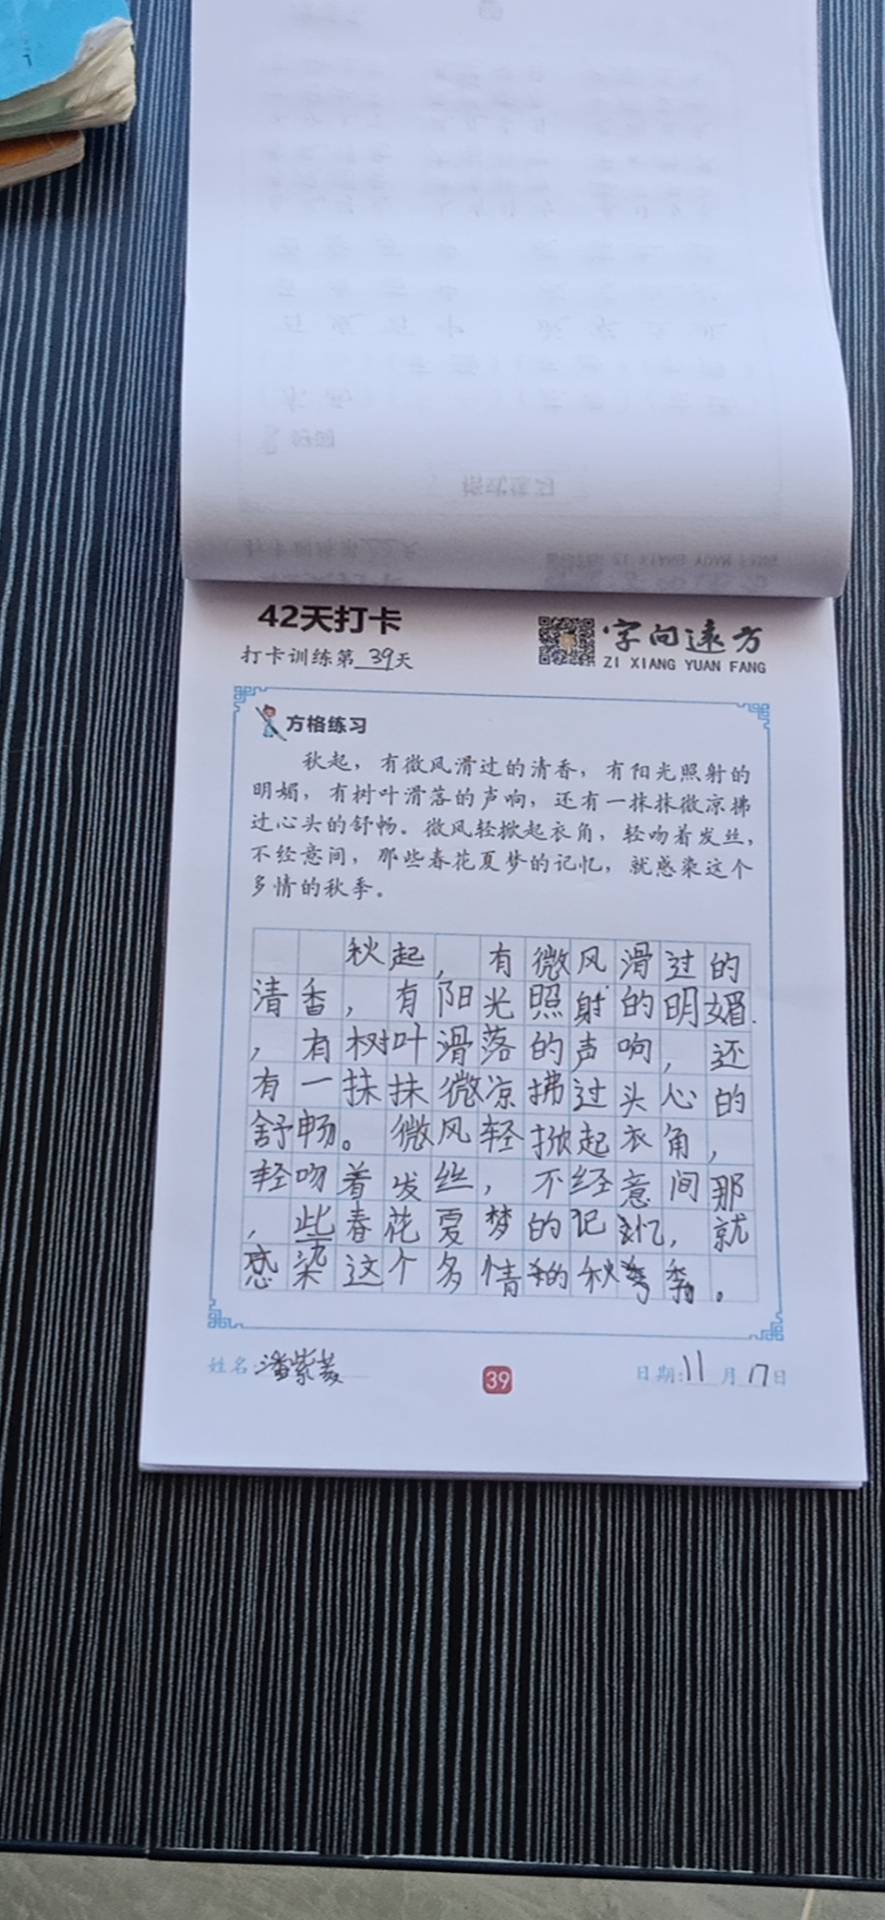 42天打卡
字向远方
打卡训练第39天
ZI XIANG YUAN FANG
方格练习
秋起，有微风滑过的清香，有阳光照射的
明媚，有树叶滑落的声响，还有一抹抹微凉拂
过心头的舒畅。微风轻掀起衣角，轻吻着发丝，
不经意间，那些春花夏梦的记忆，就感染这个
多情的秋季。
秋起，有微风滑过的
清香，有阳光照射的明媚
，有树叶滑落的声响，还
有一抹抹微凉拂过头心的
舒畅。微风轻掀起衣角，
轻吻着发丝，不经意间那
，些春花夏梦的记忆，就
感染这个多情的秋季。
姓名:潘紫菱
39
日期:11月17日